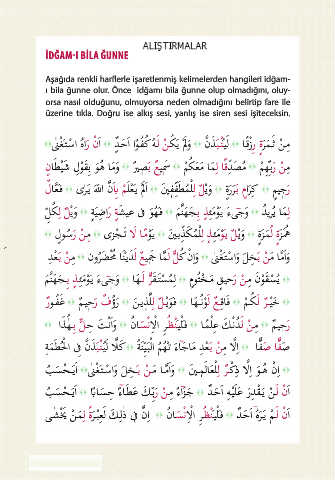 ALIŞTIRMALAR
İDĞAM-I BİLA ĞUNNE
Aşağıda renkli harflerle işaretlenmiş kelimelerden hangileri idğam-
ı bila ğunne olur. Önce idğamı bila ğunne olup olmadığını, oluy-
orsa nasıl olduğunu, olmuyorsa neden olmadığını belirtip fare ile
üzerine tıkla. Doğru ise alkış sesi, yanlış ise siren sesi işiteceksin.
مِنْ ثَمَرَةٍ رِزْقًا ۞ لَيُنْبَذَنَّ ۞ وَلَمْ يَكُنْ لَهُ كُفُوًا اَحَدٌ ۞ اَنْ رَاٰهُ اسْتَغْنٰى
مِنْ رَبِّهِمْ ۞ مُصَدِّقًا لِمَا مَعَكُمْ ۞ سَمِيعٌ بَصِيرٌ ۞ وَمَا هُوَ بِقَوْلِ شَيْطَانٍ
رَجِيمٍ ۞ كِرَامٍ بَرَرَةٍ ۞ وَيْلٌ لِلْمُطَفِّفِينَ ۞ اَلَمْ يَعْلَمْ بِاَنَّ اللّٰهَ يَرٰى ۞ فَعَّالٌ
لِمَا يُرِيدُ ۞ وَجٖىءَ يَوْمَئِذٍ بِجَهَنَّمَ ۞ فَهُوَ فٖى عٖيشَةٍ رَاضِيَةٍ ۞ وَيْلٌ لِكُلِّ
هُمَزَةٍ لُمَزَةٍ ۞ وَيْلٌ يَوْمَئِذٍ لِلْمُكَذِّبٖينَ ۞ يَوْمًا لَا تَجْزٖى ۞ مِنْ رَسُولٍ
وَاَمَّا مَنْ بَخِلَ وَاسْتَغْنٰى ۞ وَاِنْ كُلٌّ لَمَّا جَمٖيعٌ لَدَيْنَا مُحْضَرُونَ ۞ مِنْ بَعْدِ
۞ يُسْقَوْنَ مِنْ رَحٖيقٍ مَخْتُومٍ ۞ لِمُسْتَقَرٍّ لَهَا ۞ وَجٖىءَ يَوْمَئِذٍ بِجَهَنَّمَ
۞ خَيْرٌ لَكُمْ ۞ فَاقِعٌ لَوْنُهَا ۞ فَوَيْلٌ لِلَّذٖينَ ۞ رَؤُفٌ رَحٖيمٌ ۞ غَفُورٌ
رَحٖيمٌ ۞ مِنْ لَدُنْكَ عِلْمًا ۞ فَلْيَنْظُرِ الْاِنْسَانُ ۞ وَاَنْتَ حِلٌّ بِهٰذَا ۞
صَفًّا صَفًّا ۞ اِلَّا مِنْ بَعْدِ مَاجَاءَتْهُمُ الْبَيِّنَةُ ۞ كَلَّا لَيُنْبَذَنَّ فِى الْحُطَمَةِ
۞ اِنْ هُوَ اِلَّا ذِكْرٌ لِلْعَالَمٖينَ ۞ وَاَمَّا مَنْ بَخِلَ وَاسْتَغْنٰى ۞ اَيَحْسَبُ
اَنْ لَنْ يَقْدِرَ عَلَيْهِ اَحَدٌ ۞ جَزَاءً مِنْ رَبِّكَ عَطَاءً حِسَابًا ۞ اَيَحْسَبُ
اَنْ لَمْ يَرَهُ اَحَدٌ ۞ فَلْيَنْظُرِ الْاِنْسَانُ ۞ اِنَّ فٖى ذٰلِكَ لَعِبْرَةً لِمَنْ يَخْشٰى